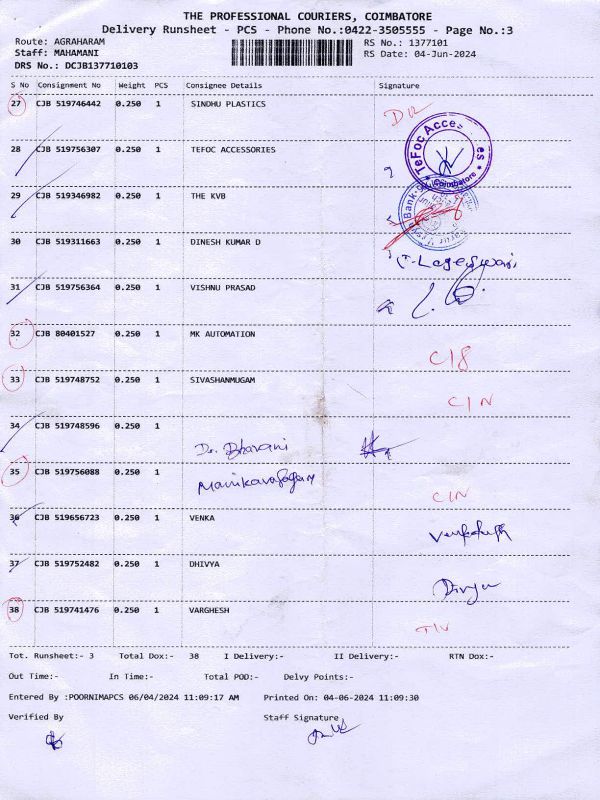 THE PROFESSIONAL COURIERS, COIMBATORE
Delivery Runsheet - PCS - Phone No.:0422-3505555 - Page No.:3
Route: AGRAHARAM
Staff: MAHAMANI
DRS No.: DCJB137710103
RS No.: 1377101
RS Date: 04-Jun-2024
S No Consignment No Weight PCS Consignee Details Signature
27 CJB 519746442 0.250 1 SINDHU PLASTICS
28 CJB 519756307 0.250 1 TEFOC ACCESSORIES TeFoc Accessories Coimbatore
29 CJB 519346982 0.250 1 THE KVB
30 CJB 519311663 0.250 1 DINESH KUMAR D
31 CJB 519756364 0.250 1 VISHNU PRASAD
32 CJB 80401527 0.250 1 MK AUTOMATION
33 CJB 519748752 0.250 1 SIVASHANMUGAM C/N
34 CJB 519748596 0.250 1 Dr. Bharani
35 CJB 519756088 0.250 1 C/N
36 CJB 519656723 0.250 1 VENKA
37 CJB 519752482 0.250 1 DHIVYA
38 CJB 519741476 0.250 1 VARGHESH
Tot. Runsheet:- 3 Total Dox:- 38 I Delivery:- II Delivery:- RTN Dox:-
Out Time:- In Time:- Total POD:- Delvy Points:-
Entered By :POORNIMAPCS 06/04/2024 11:09:17 AM Printed On: 04-06-2024 11:09:30
Verified By Staff Signature